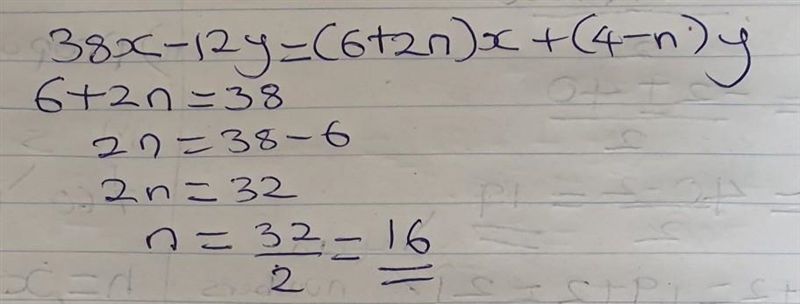 38x-12y=(6+2n)x+(4-n)y
6+2n=38
2n=38-6
2n=32
n=32/2=16